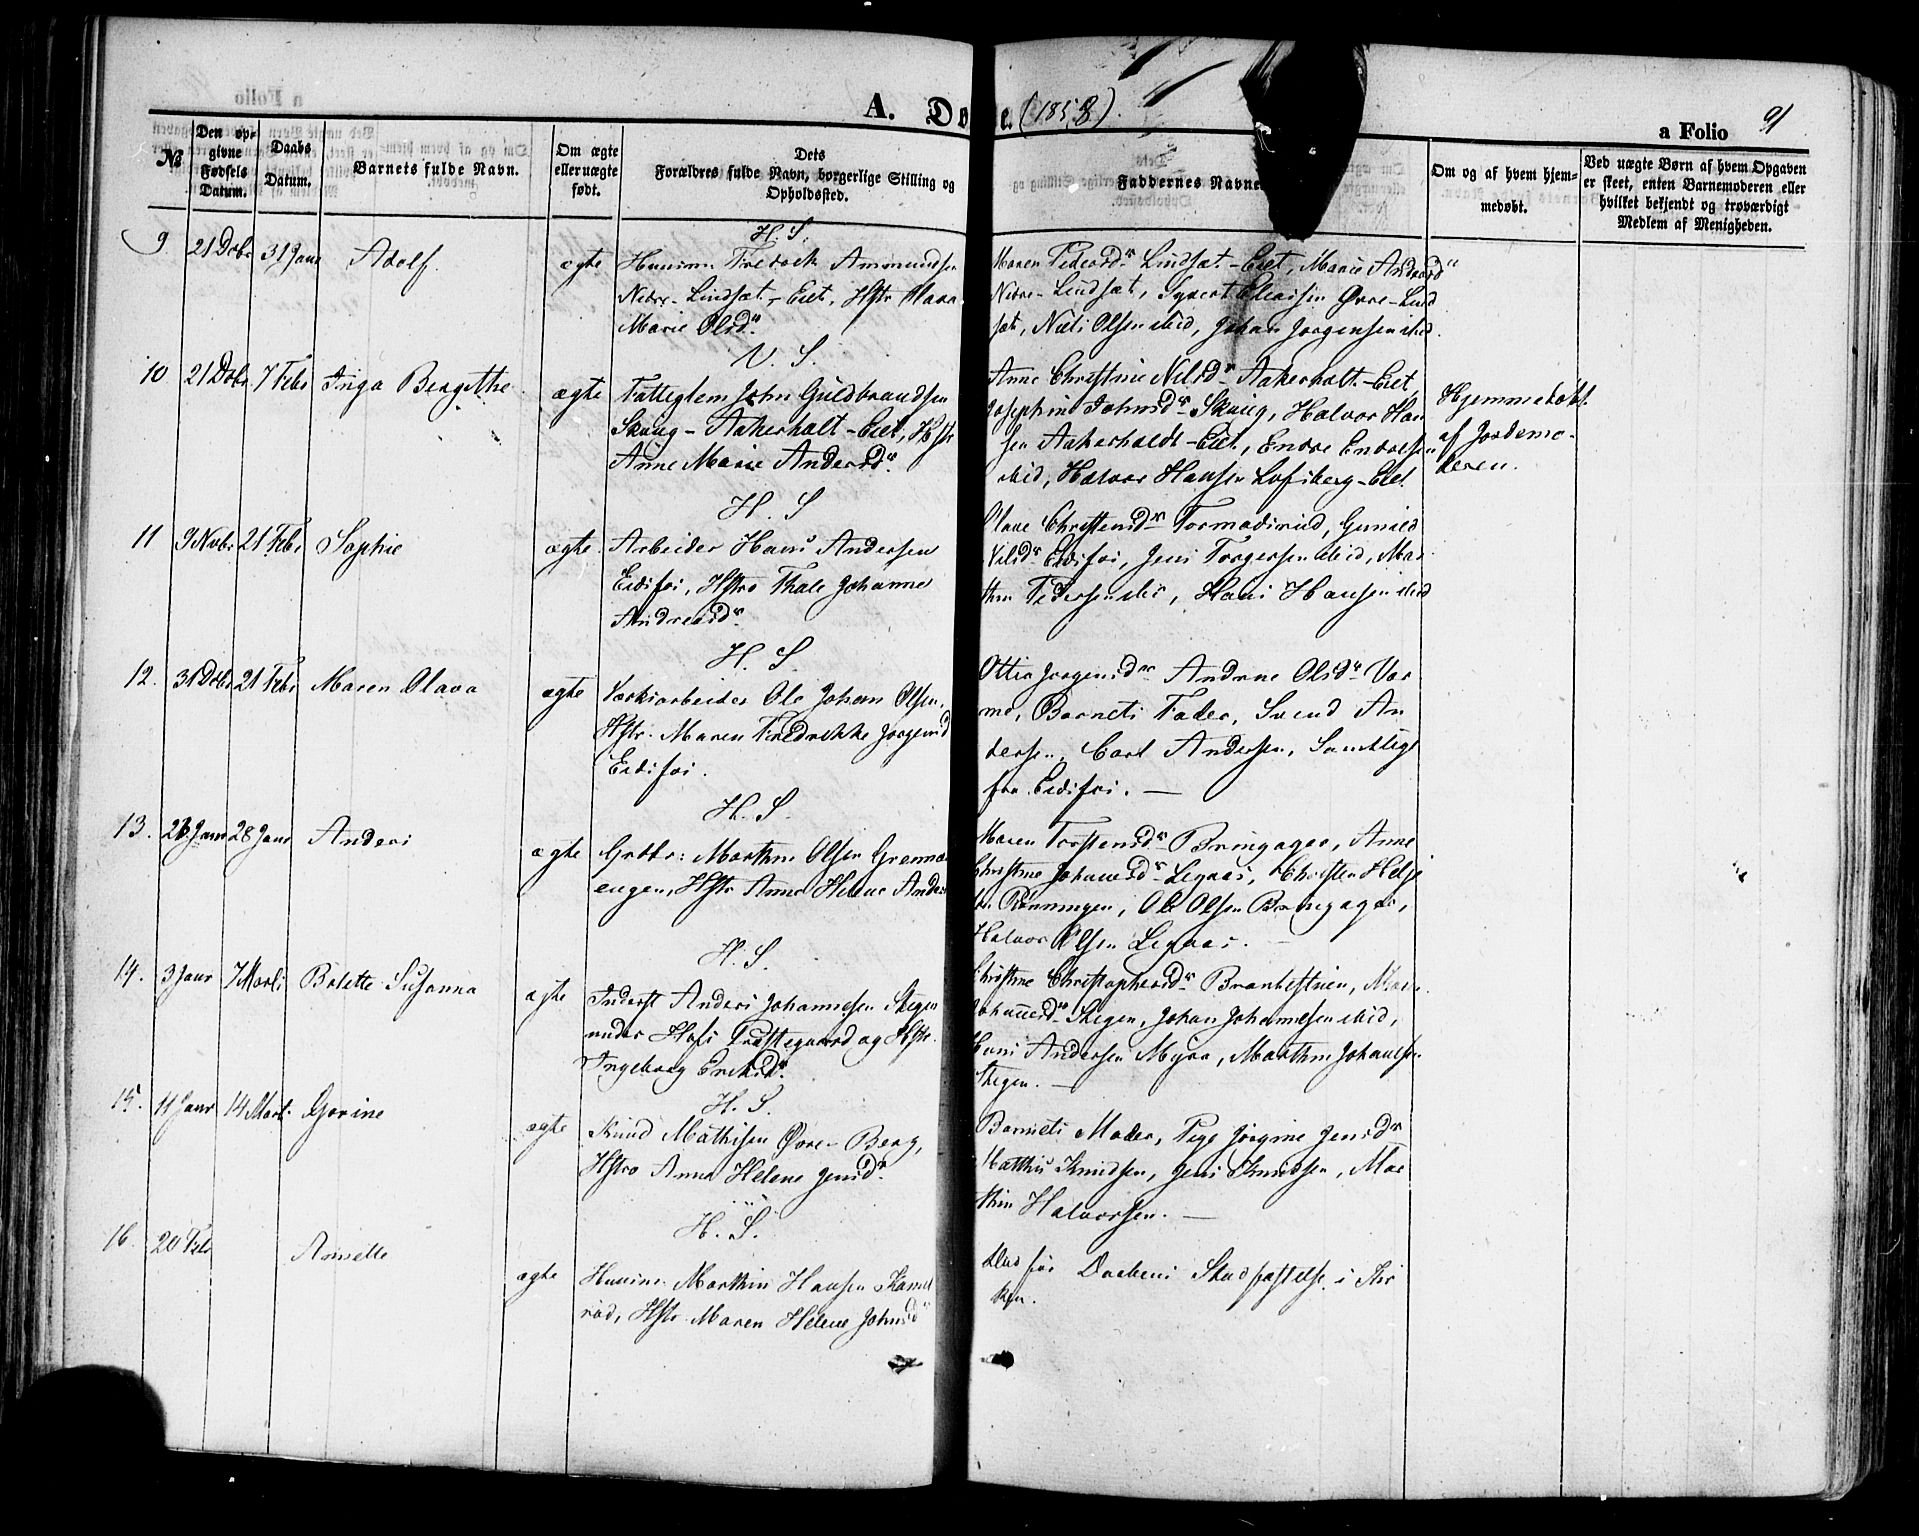 A. Døbte. (1858).
a Folio 91
No
Den opgivne Fødsels Datum.
Daabs Datum.
Barnets fulde Navn.
Om ægte eller uægte født.
Dets Forældres fulde Navn, borgerlige Stilling og Opholdssted.
Faddernes Navne
Om og af hvem hjemmedøbt.
Ved uægte Børn af hvem Opgaven er skeet, enten Barnemoderen eller hvilket bekjendt og troværdigt Medlem af Menigheden.
H. S.
9 21 Dcbr 31 Janr Adolf ægte
Huusm. Fredrek Ammundsen
Nedre-Lindsæt-Eiet, Hstr Olava
Marie Olsdr
Maren Pedersdr Lindsæt-Eiet, Marie Andersdr
Nedre-Lindsæt, Syvert Eliasen Øvre-Lind
sæt, Niels Olsen ibid, Johan Jørgensen ibid.
N. S.
10 21 Dcbr 7 Febr Inga Bergithe ægte
Fattiglem John Guldbrandsen
Skaug-Aakerhalt-Eiet, Hstr
Anne Marie Andersdr
Anne Christine Nilsdr Aakerhalt-Eiet
Josephine Johnsdr Skaug, Halvor Han
sen Aakerholdt-Eiet, Endre Endresen
ibid, Halvor Hansen Lofsberg-Eiet
Hjemmedøbt
af Jordemo-
deren.
H. S
11 9 Novbr 21 Febr Sophie ægte
Arbeider Hans Andersen
Eidsfos, Hstro Thale Johanne
Andreasdr
Olave Christensdr Formodsrud, Gunild
Nilsdr Eidsfos, Jens Torgersen ibid, Mar
thin Pedersen ibid, Hans Hansen ibid
H. S.
12. 31 Dcbr 21 Febr Maren Olava ægte
Værksarbeider Ole Johan Olsen,
Hstr. Maren Fredrikke Jørgensd
Eidsfos.
Ottia Jorgensdr Andrine Olsdr Var
me, Barnets Fader, Svend An
dersen, Carl Andersen, Samtlige
fra Eidsfos. —
H. S.
13. 26 Janr 28 Janr Anders ægte
Grdbr: Marthin Olsen Grenna
engen, Hstr Anne Helene Anders
Maren Torstensdr Bringager, Anne
Christine Johannesdr Legaas, Christen Helje
Rønningen, Ole Olsen Bringager,
Halvor Olsen Legaas. —
H. S.
14. 3 Janr 7 Marts Bolette Susanna ægte
Inderst Anders Johannesen Stegen
under Hofs Præstegaard og Hstr.
Ingeborg Eriksdr
Christine Christophersdr Brantestuen, Maren
Johannesdr Stegen, Johan Johannesen ibid,
Hans Andersen Myra, Marthin Johannesen
Stegen. —
H. S.
15. 11 Janr 14 Mart. Gorine ægte
Knud Mathisen Øvre-Berg,
Hstro Anne Helene Jensdr
Barnets Moder, Pige Jørgine Jensdr
Matthis Knudsen, Jens Knudsen, Mar
thin Halvorsen. —
H. S.
16. 20 Febr Annette ægte
Huusm. Marthin Hansen Kamel
rød, Hstr Maren Helene Johnsd
død før Daabens Stadfæstelse i Kir
ken.